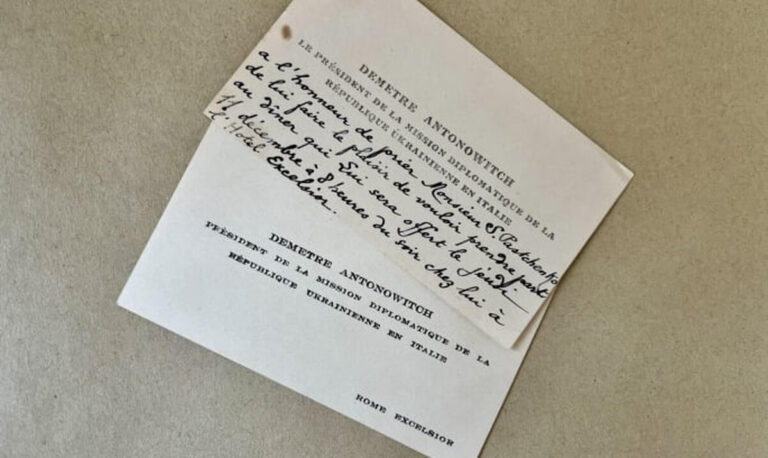 DEMETRE ANTONOWITCH
LE PRÉSIDENT DE LA MISSION DIPLOMATIQUE DE LA
RÉPUBLIQUE UKRAINIENNE EN ITALIE
a l'honneur de prier Monsieur S. Pastchenko
de lui faire le plaisir de vouloir prendre part
au dîner qui sera offert le jeudi
11 décembre à 8 heures du soir chez lui à
l'Hotel Excelsior.
DEMETRE ANTONOWITCH
PRÉSIDENT DE LA MISSION DIPLOMATIQUE DE LA
RÉPUBLIQUE UKRAINIENNE EN ITALIE
ROME EXCELSIOR